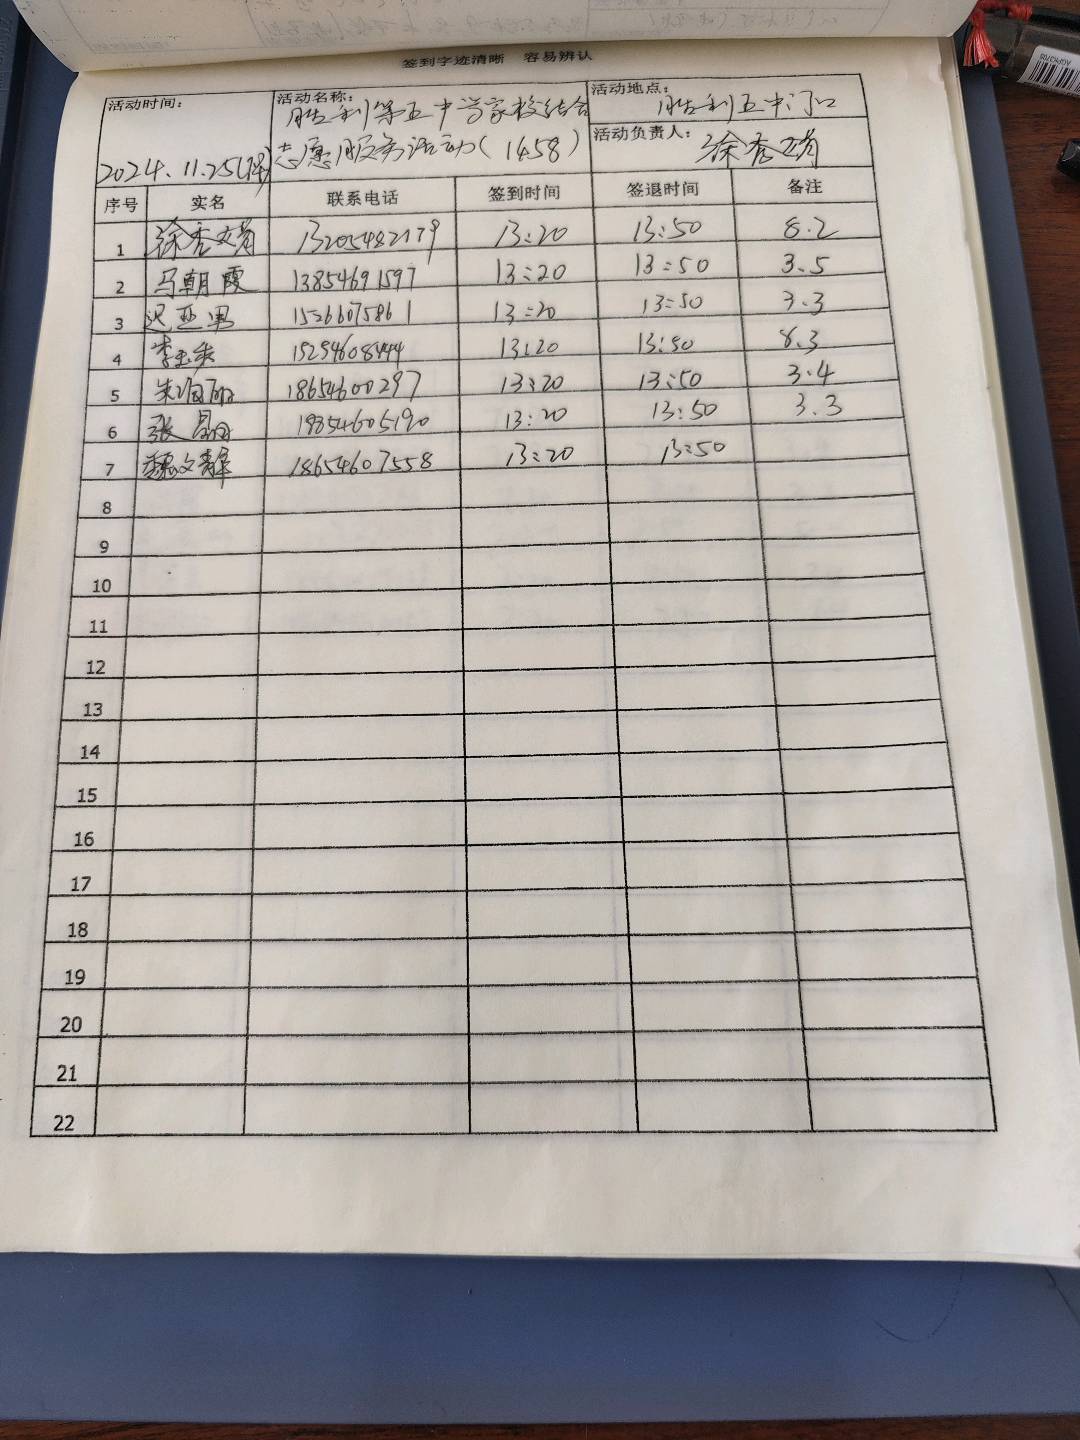 签到字迹清晰 容易辨认
活动时间：
2024.11.25
活动名称：
胜利第五中学家校结合
志愿服务活动(1458)
活动地点：
胜利五中门口
活动负责人：
徐秀
序号 实名 联系电话 签到时间 签退时间 备注
1 徐秀 13205482179 13:20 13:50 8.2
2 马朝霞 13854691597 13:20 13:50 3.5
3 迟亚男 15266075861 13:20 13:50 3.3
4 李玉 15254608444 13:20 13:50 8.3
5 朱 18654600297 13:20 13:50 3.4
6 张晶 19854605190 13:20 13:50 3.3
7 魏文静 18654607558 13:20 13:50
8
9
10
11
12
13
14
15
16
17
18
19
20
21
22